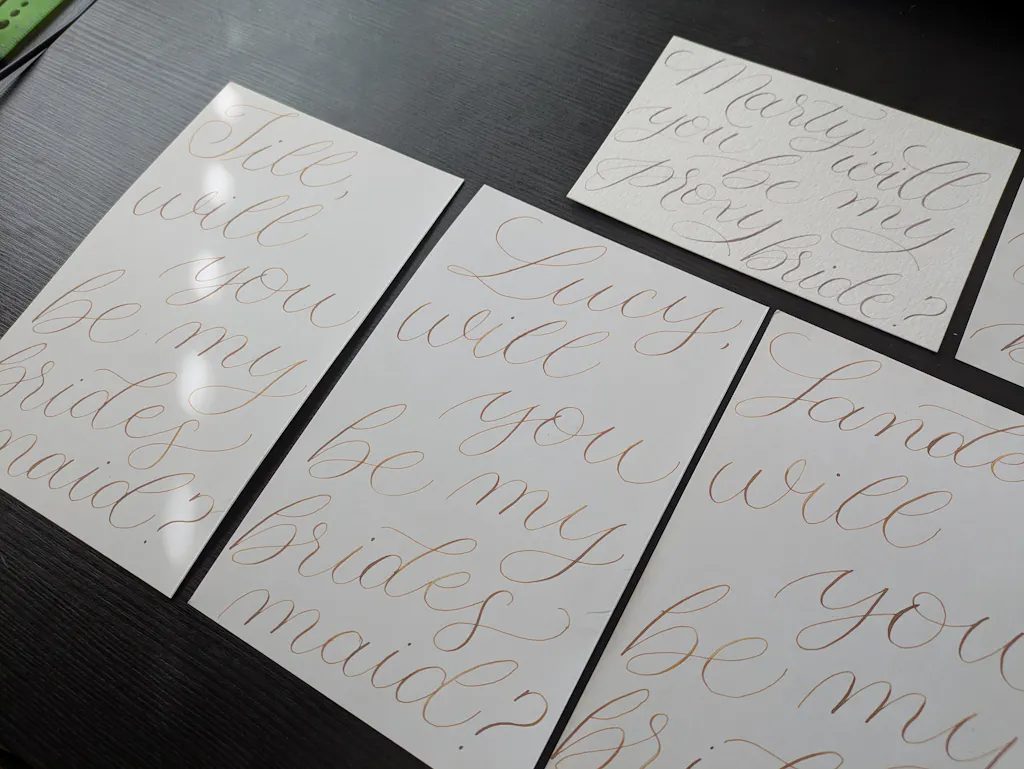 Jill,
will
you
be my
brides
maid?
Lucy,
will
you
be my
brides
maid?
Marty will
you be my
proxy
bride?
will
you
be my